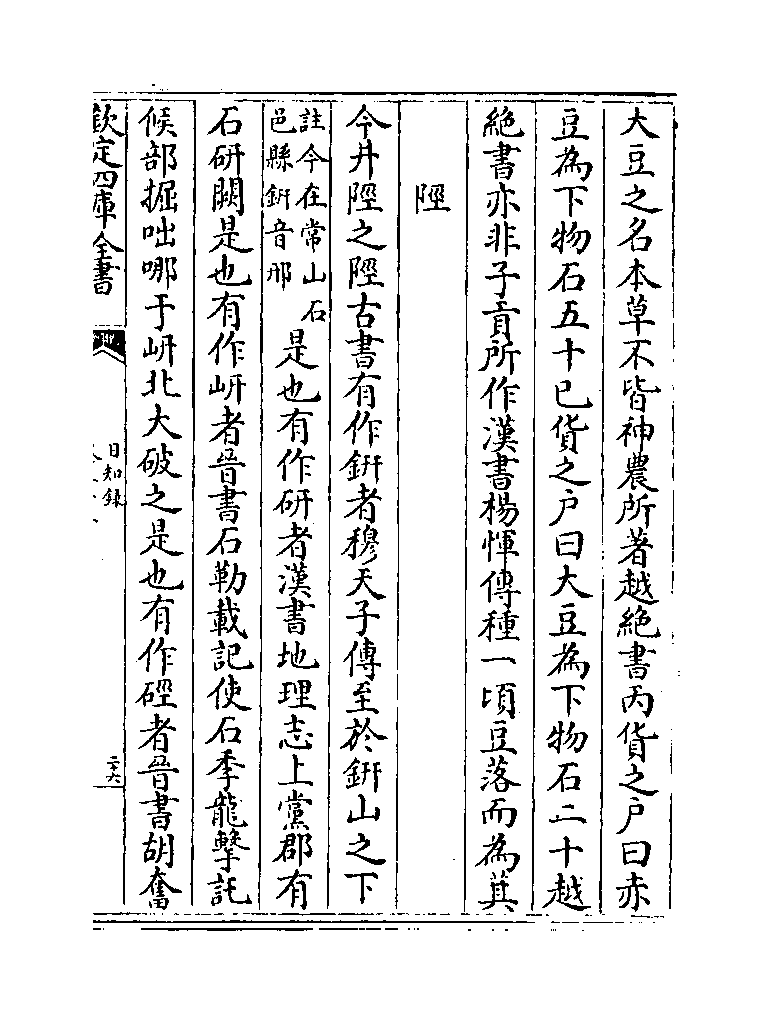 大豆之名本草不皆神農所著越絶書丙貨之户曰赤
豆為下物石五十已貨之户曰大豆為下物石二十越
絶書亦非子貢所作漢書楊惲傳種一頃豆落而為萁
陘
今井陘之陘古書有作鈃者穆天子傳至於鈃山之下
註今在常山石
邑縣鈃音邢
是也有作研者漢書地理志上黨郡有
石研闗是也有作岍者晉書石勒載記使石季龍擊託
候部掘咄哪于岍北大破之是也有作硜者晉書胡奮
欽定四庫全書
日知録
二十六